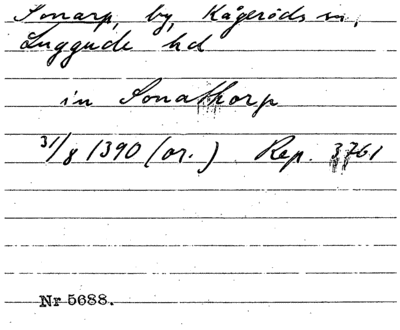 Sonarp, by, Kågeröds sn,
Luggude hd
in Sonathorp
31/8 1390 (or.) Rep. 3761
Nr 5688.